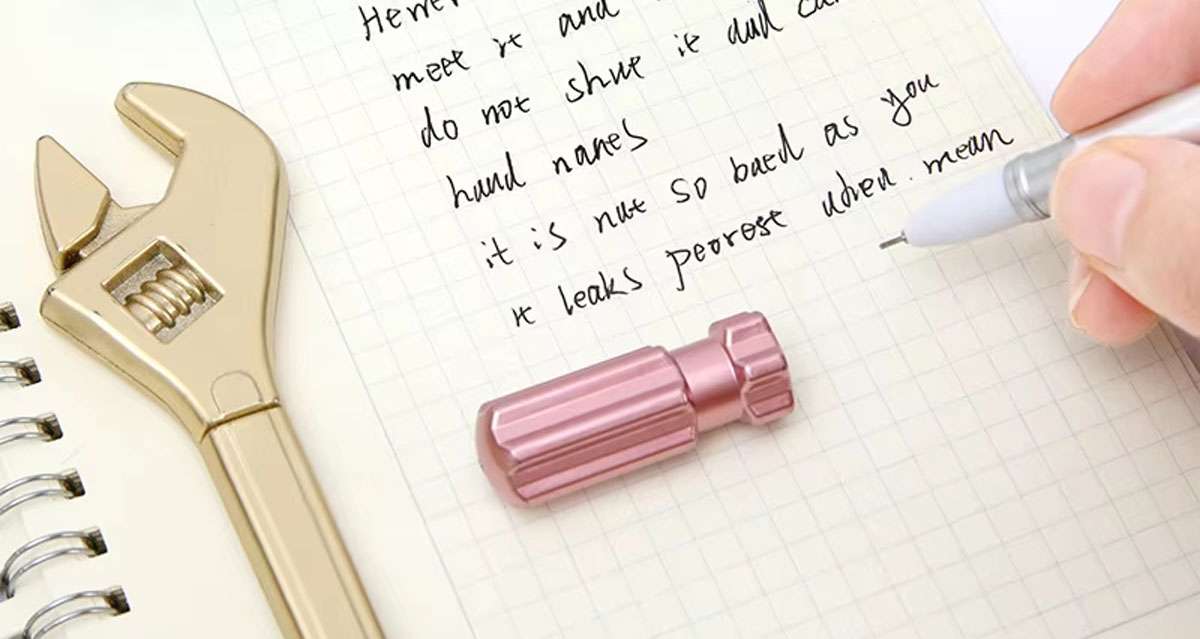 meet it and
do not shut it and
hand names
it is not so baed as you
it leaks peorest when mean